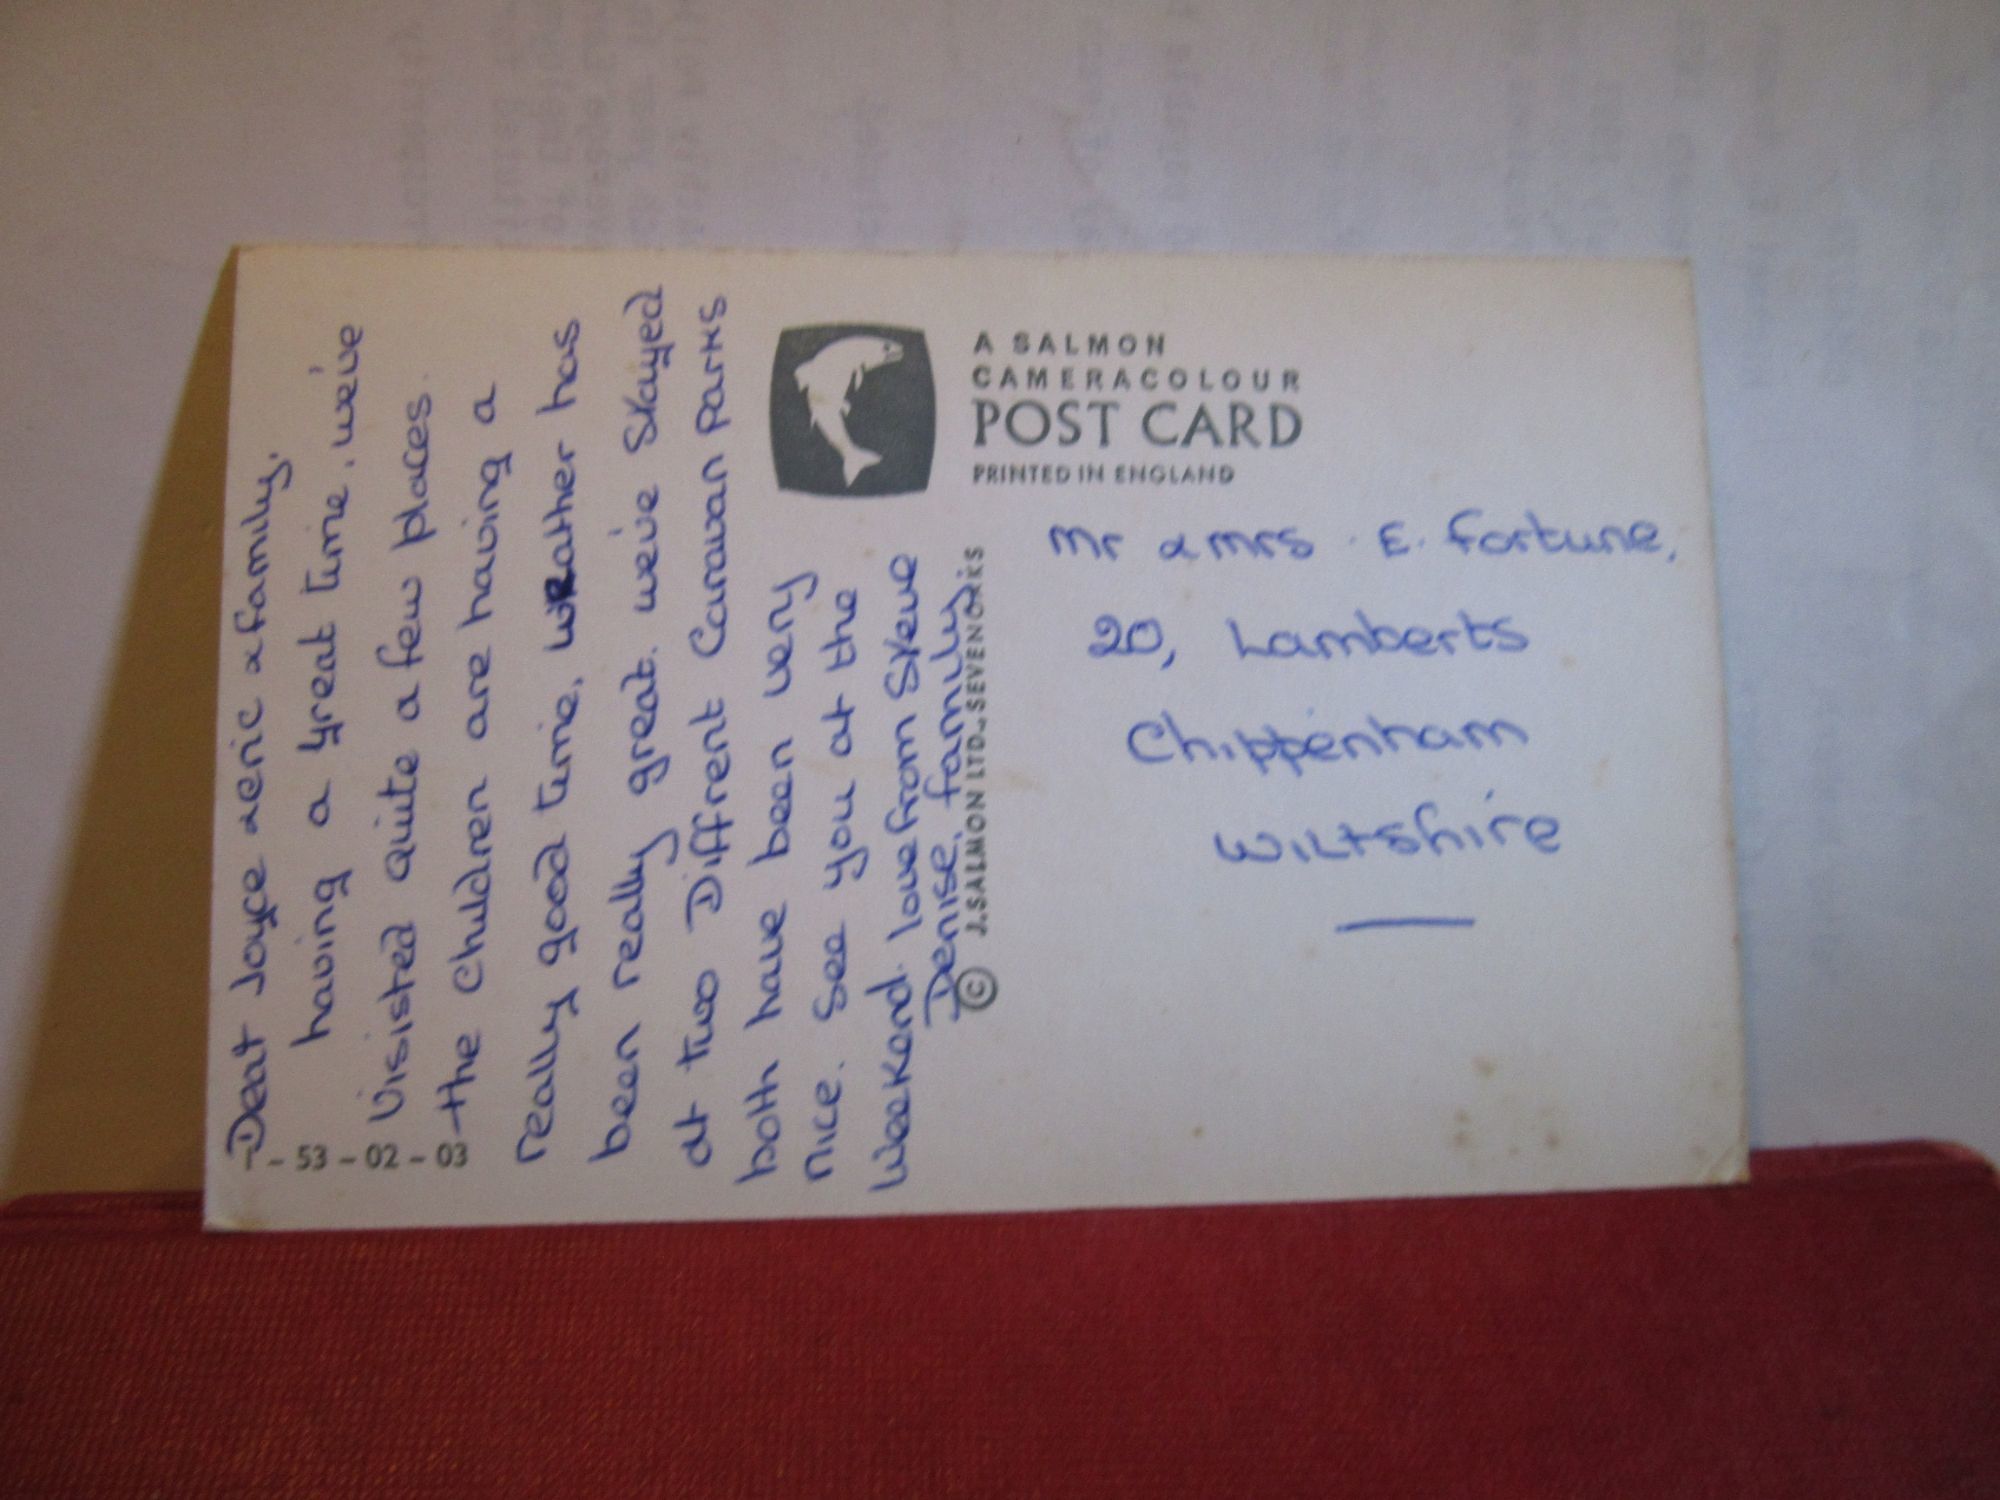 Dear Joyce &eric & family,
having a great time, we've
Visisted quite a few places.
the children are having a
really good time, weather has
been really great. we've stayed
at two Diffrent Caravan Parks
both have been very
nice. see you at the
Weekend. love from Steve
Denise, family
- - 53 - 02 - 03
A SALMON
CAMERACOLOUR
POST CARD
PRINTED IN ENGLAND
© J. SALMON LTD., SEVENOAKS
Mr & mrs . E. Fortune,
20, Lamberts
Chippenham
Wiltshire